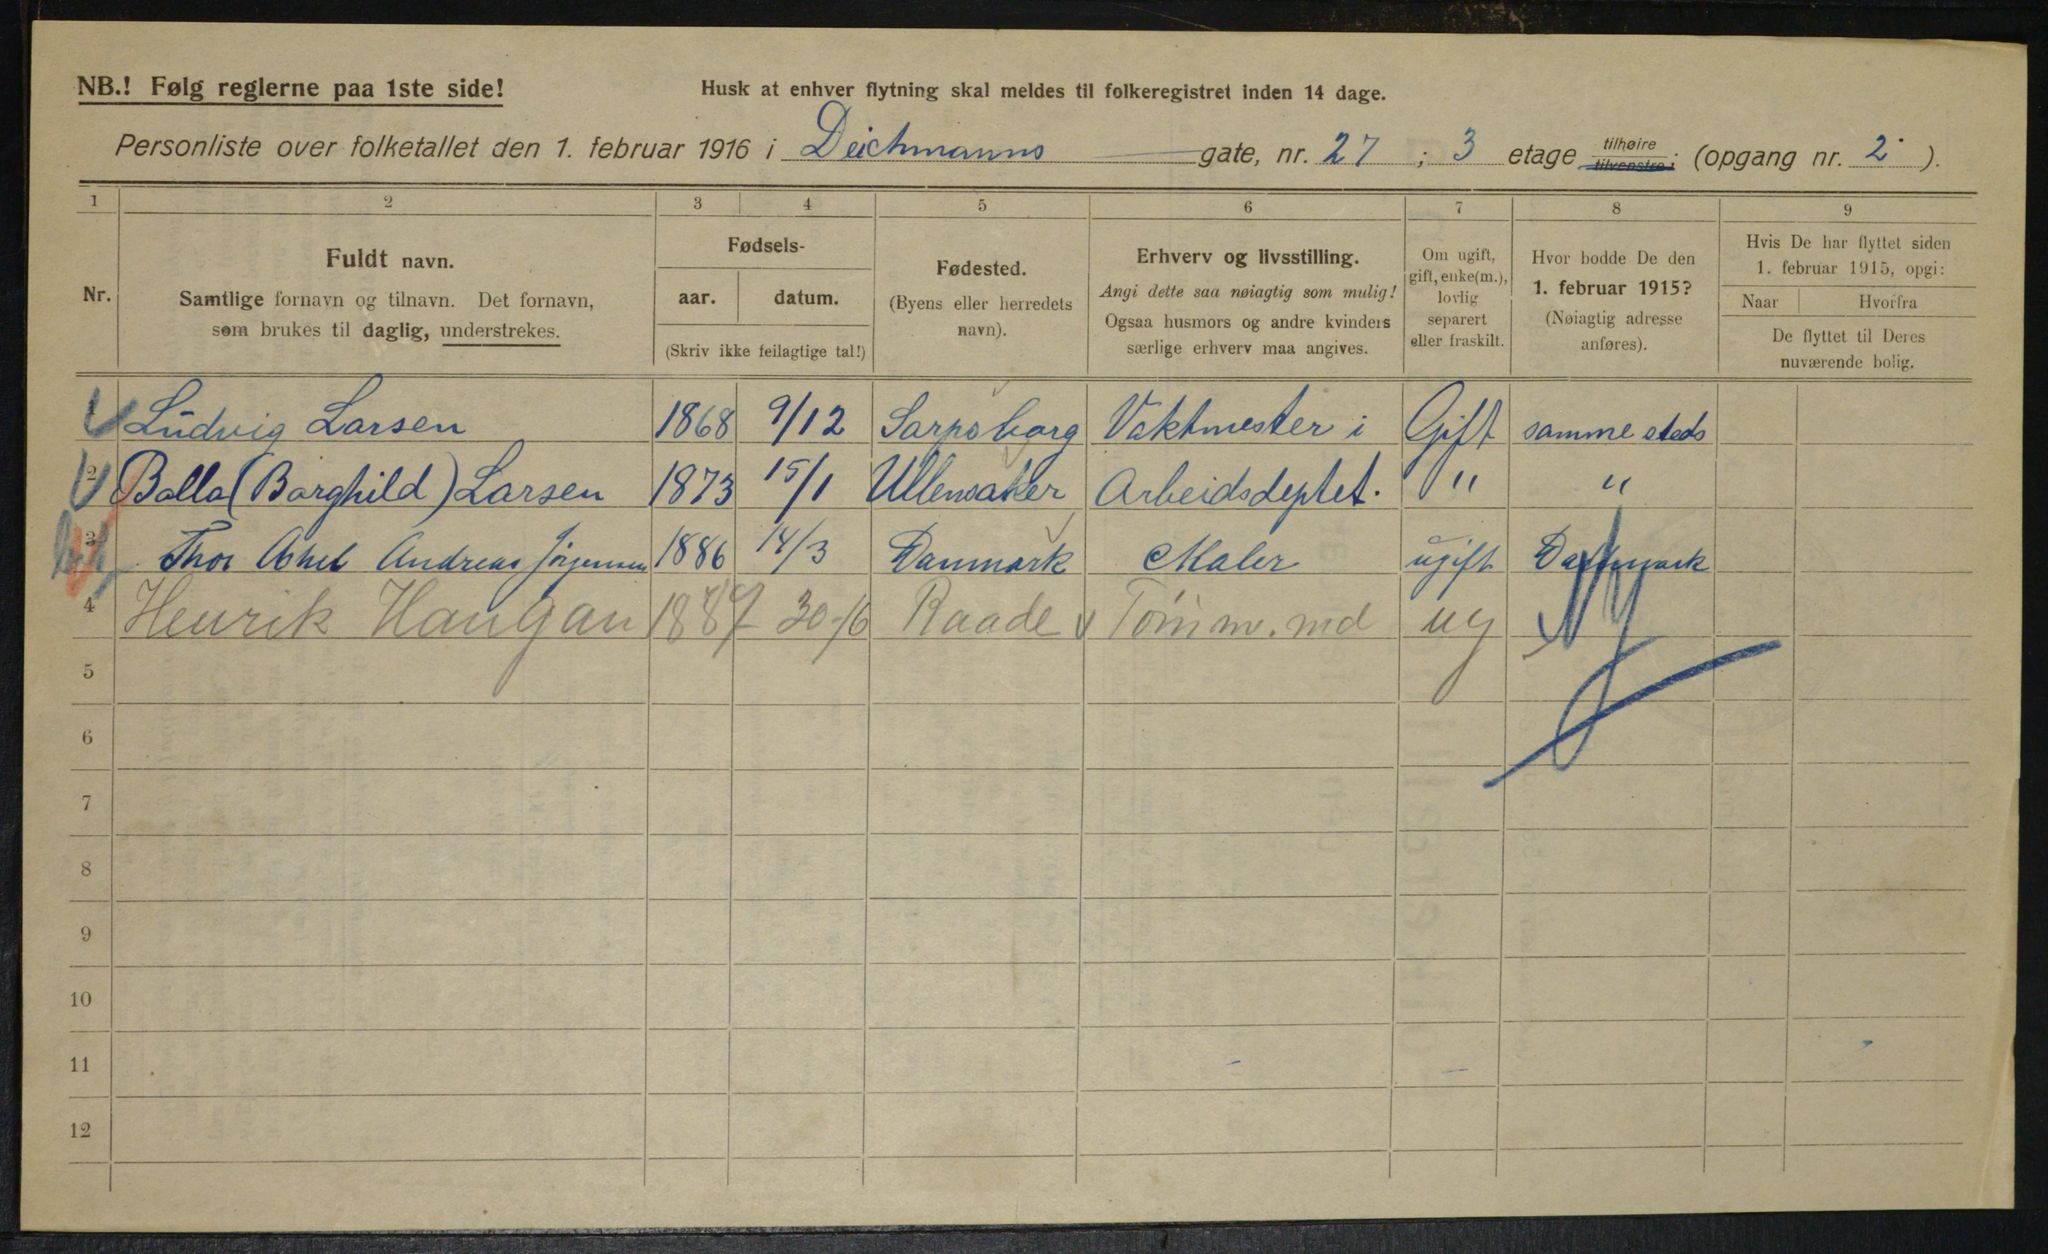 NB.! Følg reglerne paa 1ste side!
Husk at enhver flytning skal meldes til folkeregistret inden 14 dage.
Personliste over folketallet den 1. februar 1916 i Deichmanns gate, nr. 27 ; 3 etage tilhøire tilvenstre i (opgang nr. 2 ).
1 2 3 4 5 6 7 8 9
Nr.
Fuldt navn.
Samtlige fornavn og tilnavn. Det fornavn,
som brukes til daglig, understrekes.
Fødsels-
aar. datum.
(Skriv ikke feilagtige tal!)
Fødested.
(Byens eller herredets
navn).
Erhverv og livsstilling.
Angi dette saa nøiagtig som mulig!
Ogsaa husmors og andre kvinders
særlige erhverv maa angives.
Om ugift,
gift, enke(m.),
lovlig
separert
eller fraskilt.
Hvor bodde De den
1. februar 1915?
(Nøiagtig adresse
anføres).
Hvis De har flyttet siden
1. februar 1915, opgi:
Naar Hvorfra
De flyttet til Deres
nuværende bolig.
Ludvig Larsen 1868 9/12 Sarpsborg Vaktmester i Gift samme steds
2 Balla (Borghild) Larsen 1873 15/1 Ullensaker Arbeidsdeptet. " "
3 Thor Axhel Andreas Jörgensen 1886 14/3 Danmark Maler ugift Danmark
4 Henrik Haugan 30-6 Raade Tømm.md ug
5
6
7
8
9
10
11
12